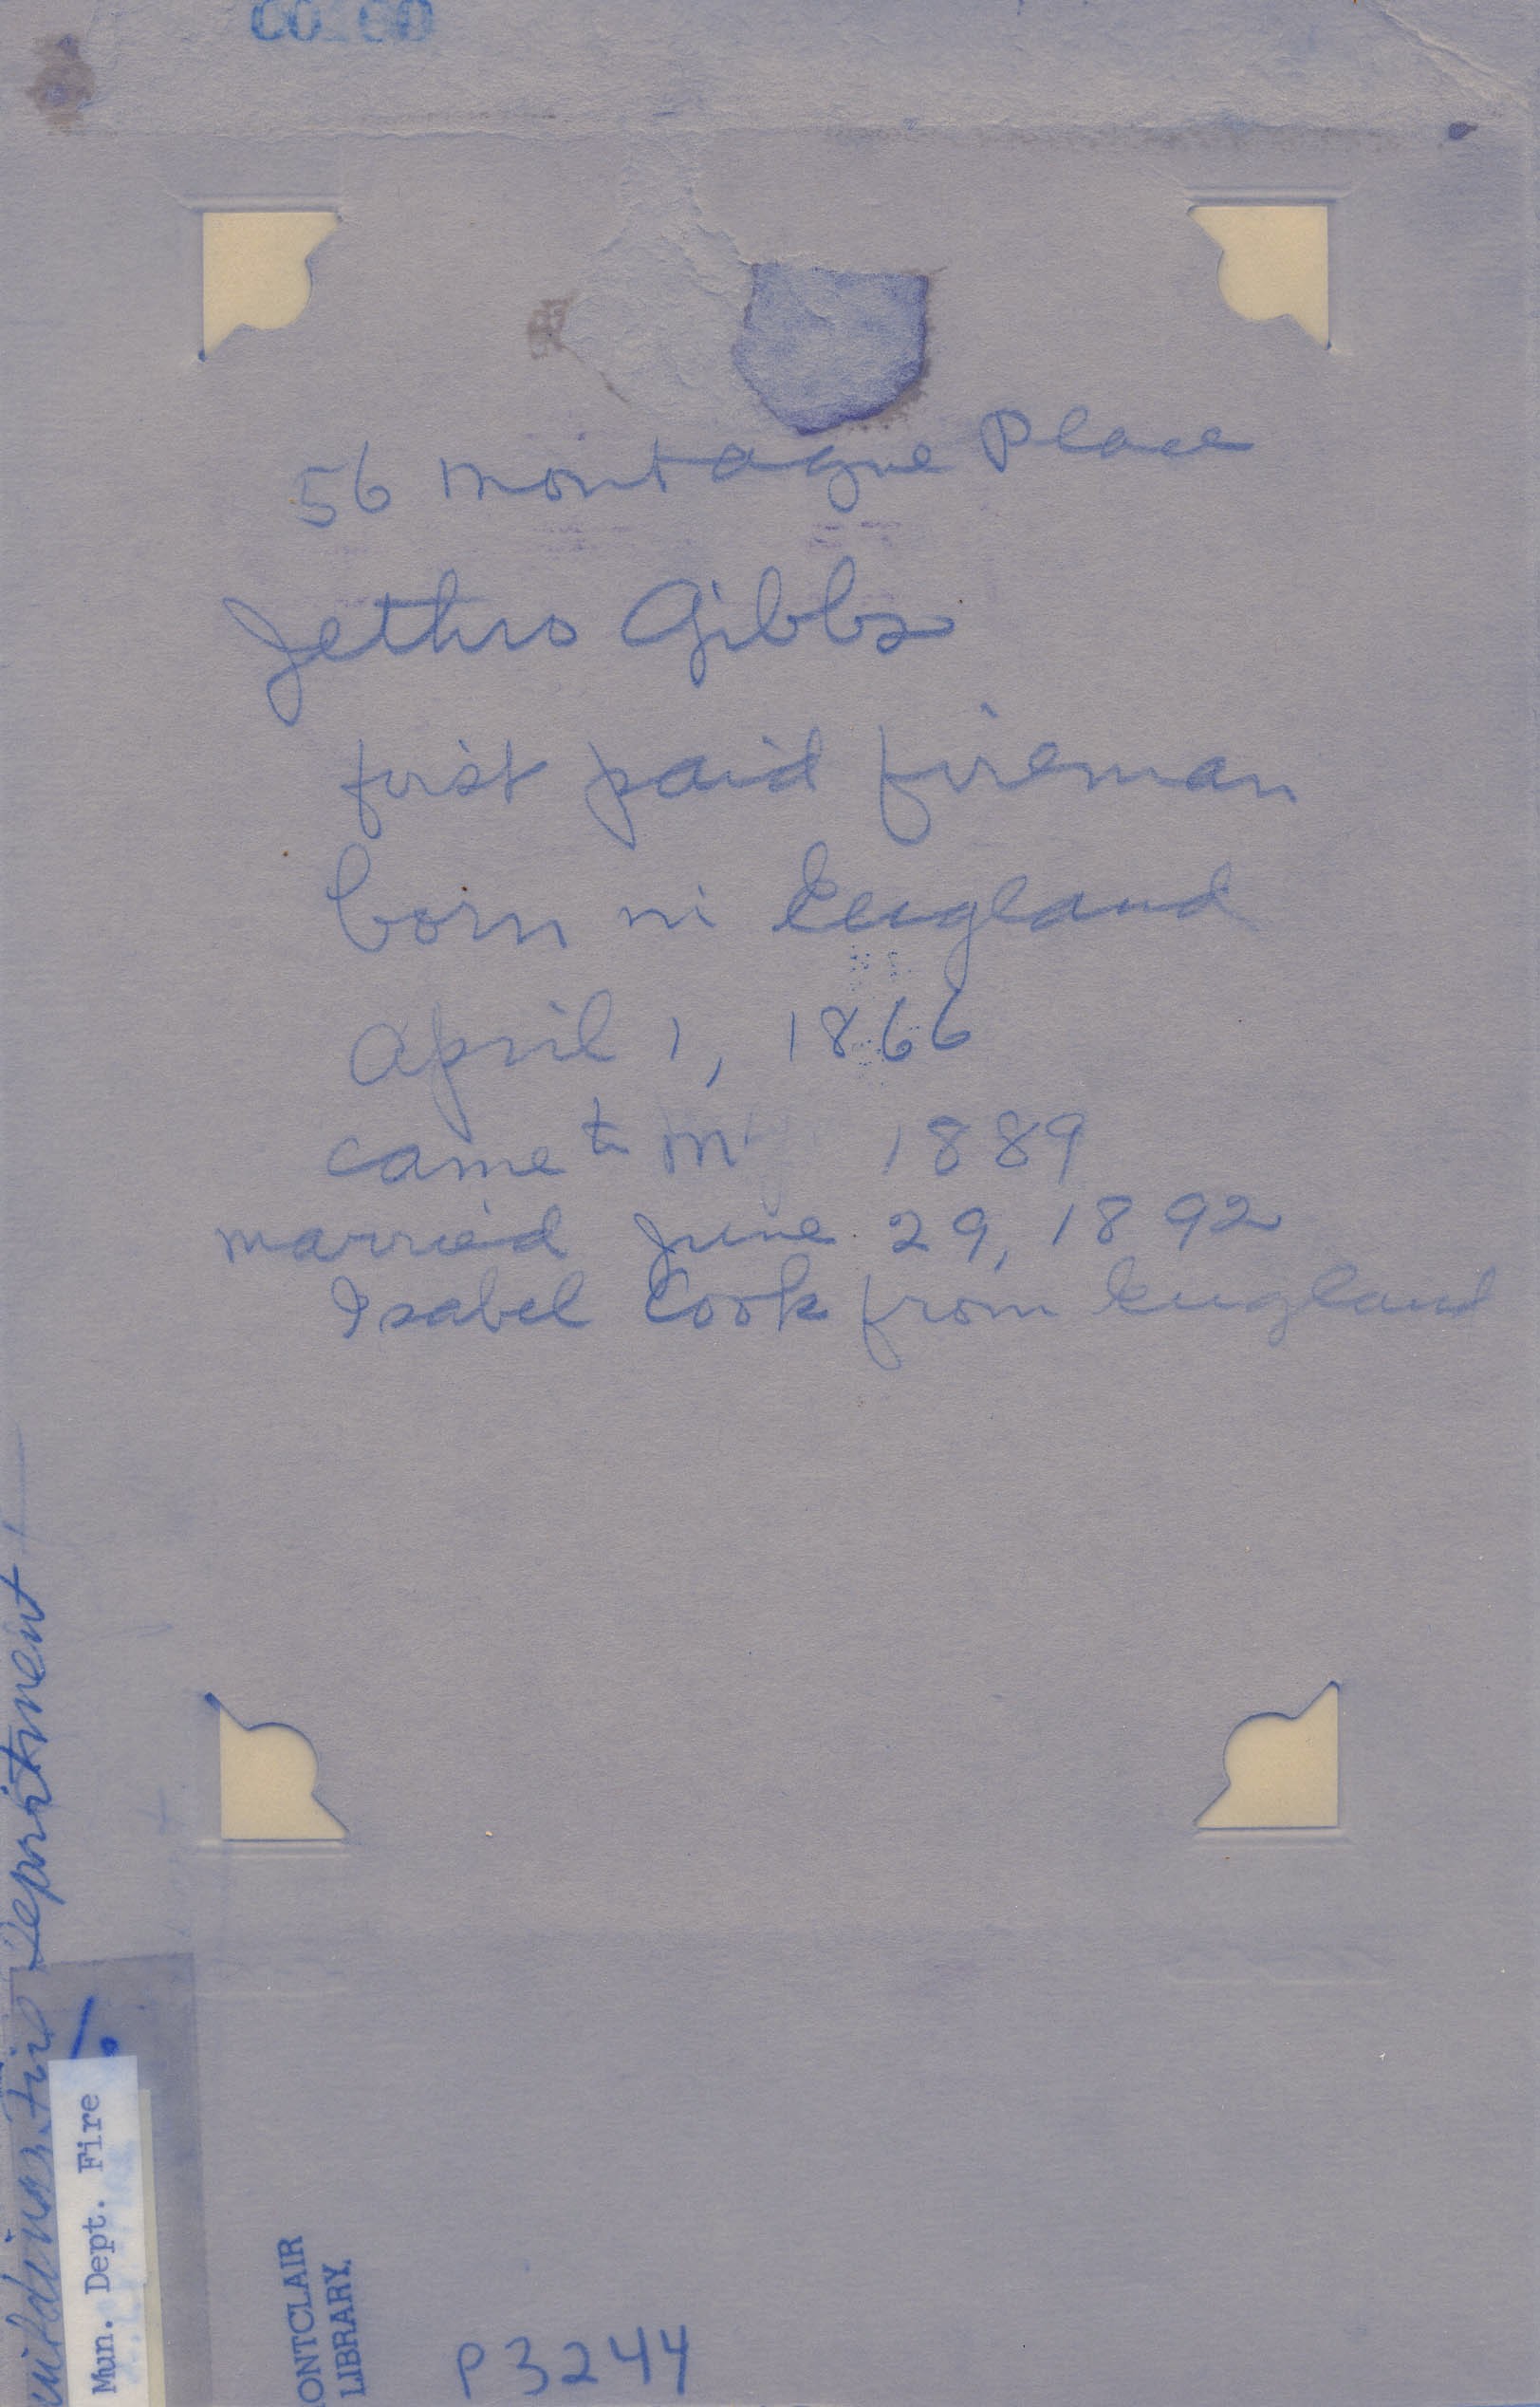 56 Montague Place
Jethro Gibbs
first paid fireman
born in England
April 1, 1866
came to M 1889
married June 29, 1892
Isabel Cook from England
Fire Department
Mun. Dept. Fire
ONTCLAIR
LIBRARY.
P3244